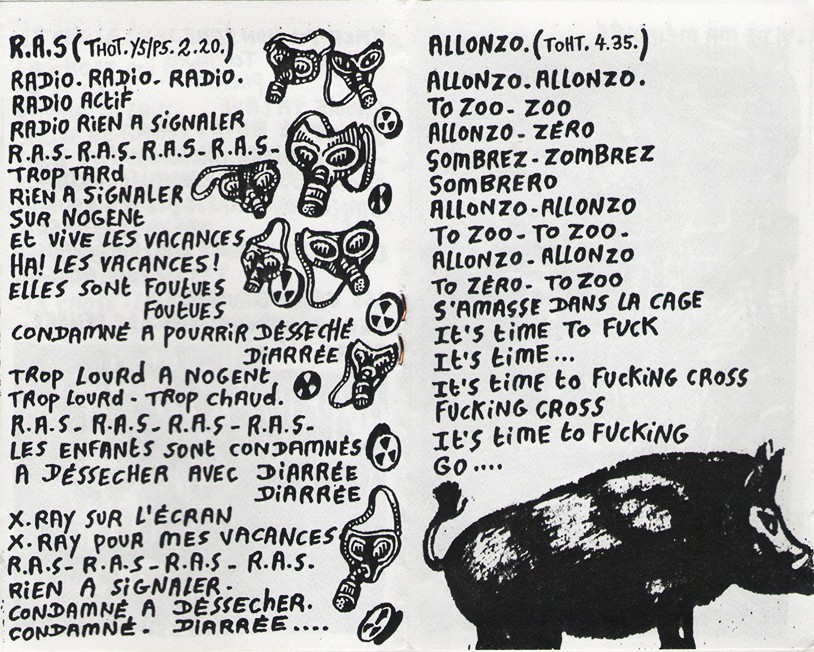 R.A.S (THOT. YS/PS. 2.20.)
RADIO. RADIO. RADIO.
RADIO ACTIF
RADIO RIEN A SIGNALER
R.A.S- R.A.S- R.A.S- R.A.S-
TROP TARD
RIEN A SIGNALER
SUR NOGENT
ET VIVE LES VACANCES
HA! LES VACANCES!
ELLES SONT FOUTUES
FOUTUES
CONDAMNÉ A POURRIR DÉSSECHÉ
DIARRÉE
TROP LOURD A NOGENT
TROP LOURD - TROP CHAUD.
R.A.S- R.A.S- R.A.S- R.A.S-
LES ENFANTS SONT CONDAMNÉS
A DÉSSECHER AVEC DIARRÉE
DIARRÉE
X.RAY SUR L'ÉCRAN
X.RAY POUR MES VACANCES
R.A.S- R.A.S- R.A.S- R.A.S.
RIEN A SIGNALER.
CONDAMNÉ A DÉSSECHER.
CONDAMNÉ. DIARRÉE....
ALLONZO. (TOHT. 4.35.)
ALLONZO. ALLONZO.
TO ZOO- ZOO
ALLONZO- ZÉRO
SOMBREZ- ZOMBREZ
SOMBRERO
ALLONZO-ALLONZO
TO ZOO- TO ZOO-
ALLONZO- ALLONZO
TO ZÉRO- TO ZOO
S'AMASSE DANS LA CAGE
IT'S TIME TO FUCK
IT'S TIME...
IT'S TIME TO FUCKING CROSS
FUCKING CROSS
IT'S TIME TO FUCKING
GO....